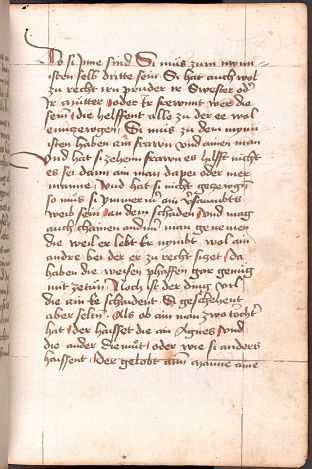 Do si Inne sind Si müs zum mynn
isten selb dritte sein Si hat auch wol
zu recht irn pruder ir Swester od'
Ir mütter oder Ir frewnt wer die
sein die helffent alle zu der ee wol
eingezeugen Si müs zu dem mynn
isten haben ain frawn vnd ainen man
Vnd hat si zehein frawn es hilfft nicht
es sei dann ain man dapei oder mer
manne vnd hat si nicht gezewgn
so müs si ymmermer ain
weib sein an dem schaden vnd mag
auch chainen andern man genemen
die weil er lebt Er nymbt wol ain
andre bei der er zu recht sitzet da
haben die weisen phaffen gar genüg
mit zetün Noch ist der ding vil
die ain ee schaident Si geschehent
aber selten Als ob ain man zwo tocht'
hat der haisset die ain Agnes vnd
die ander diemüt oder wie si anders
haissent der gelobt aim manne aine